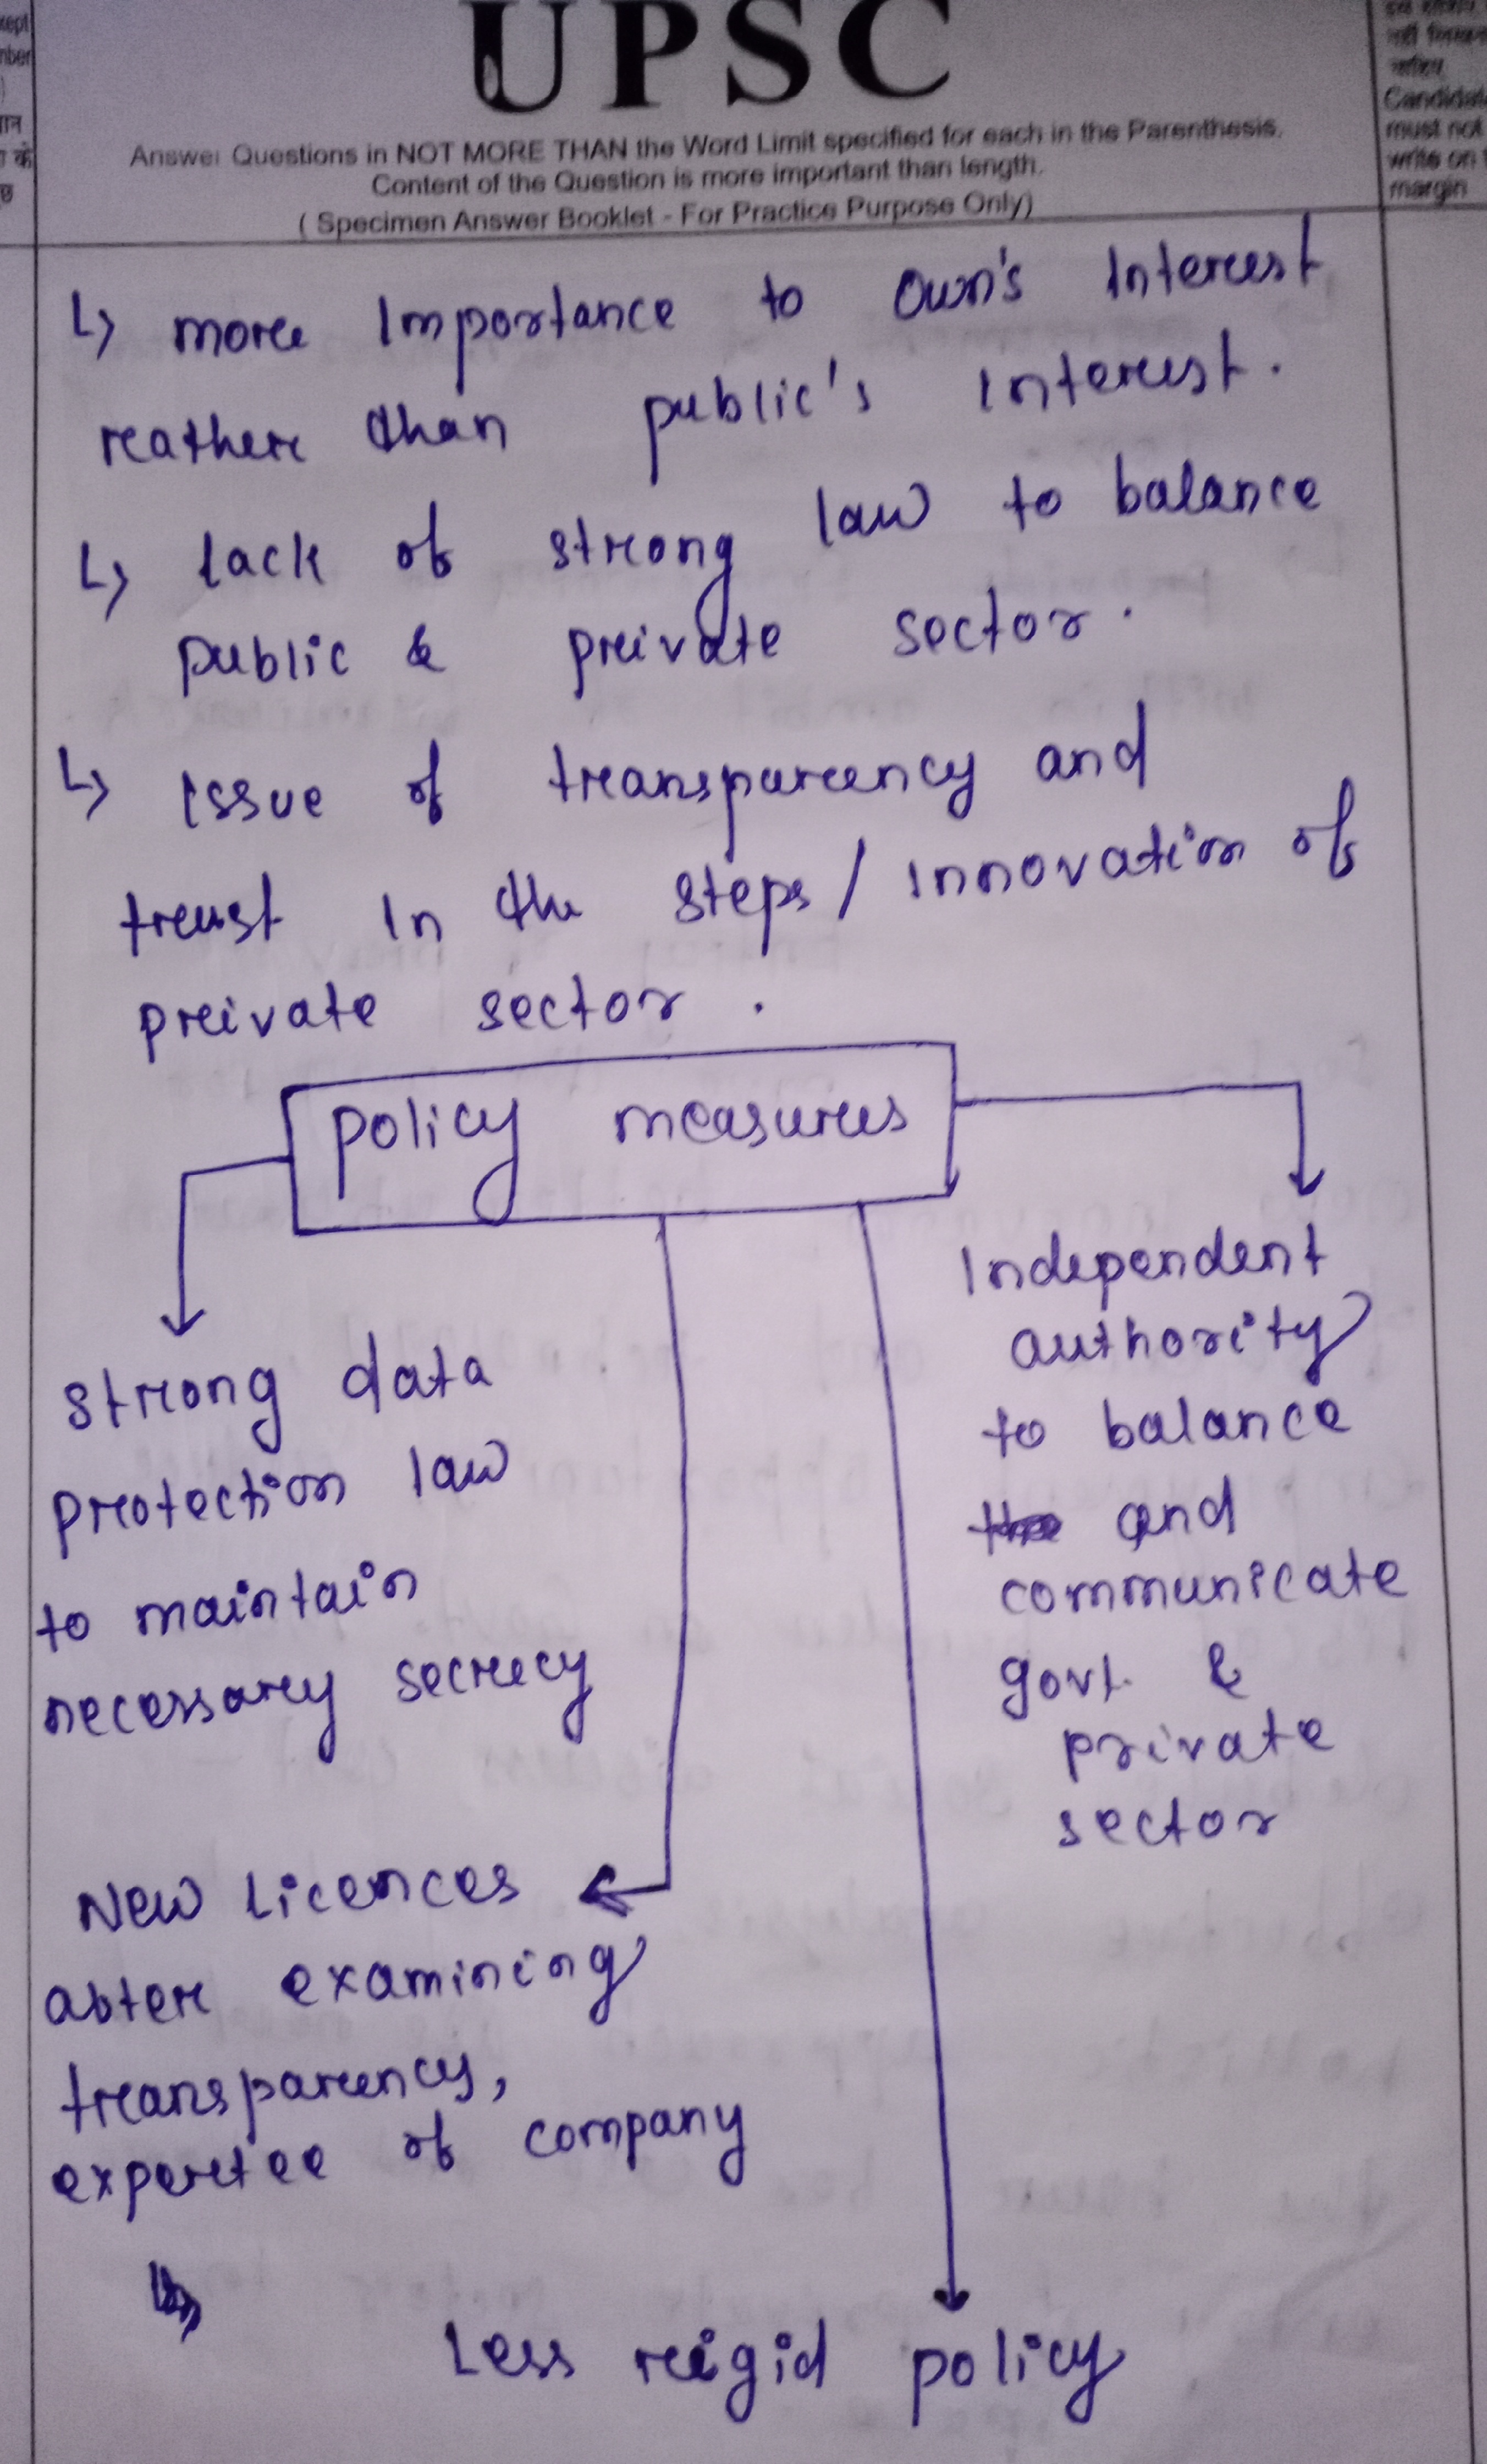 UPSC
Answer Questions in NOT MORE THAN the Word Limit specified for each in the Parenthesis.
Content of the Question is more important than length.
( Specimen Answer Booklet - For Practice Purpose Only)
Candidate
must not
write on
margin
↳ more Importance to own's Interest
rather than public's interest.
↳ lack of strong law to balance
public & private sector.
↳ issue of transparency and
trust in the steps / innovation of
private sector.
policy measures
strong data
protection law
to maintain
necessary secrecy
New Licences
after examining
transparency,
expertee of company
Less rigid policy
Independent
authority
to balance
and
communicate
govt. &
private
sector